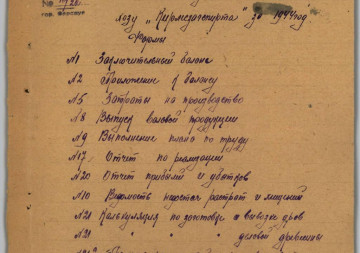 №
гор.
лозу „Кирмезагспирта" за 1944 год
Формы
№1 Заключительный баланс
№2 Приложение к балансу
№5 Затраты на производство
№8 Выпуск валовой продукции
№9 Выполнение плана по труду
№17 Отчет по реализации
№20 Отчет прибылей и убытков
№10 Ведомость недостач растрат и хищений
№21 Калькуляция по заготовке и вывозке дров
№21 " " " деловой древесины